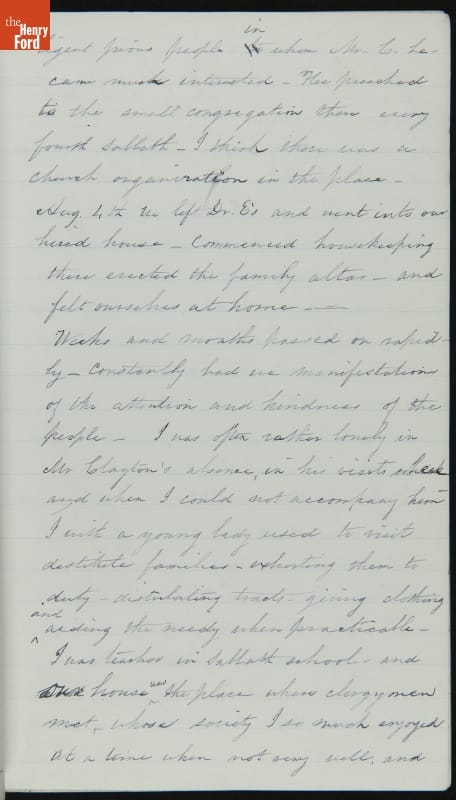 the
Henry
Ford
in
ligent pious people to whom Mr. C. be-
came much interested - He preached
to the small congregation there every
fourth Sabbath - I think there was a
church organization in the place -
Aug. 4th we left Dr. E's and went into our
hired house - Commenced housekeeping
there erected the family altar - and
felt ourselves at home -
Weeks and months passed on rapid-
ly - Constantly had we manifestations
of the attention and kindness of the
people - I was often rather lonely in
Mr Clayton's absence, in his visits
and when I could not accompany him
I with a young lady used to visit
destitute families - exhorting them to
duty - distributing tracts - giving clothing
and
^ aiding the needy when practicable -
I was teacher in Sabbath school - and
our house was the place where clergymen
met, whose society I so much enjoyed
at a time when not very well, and